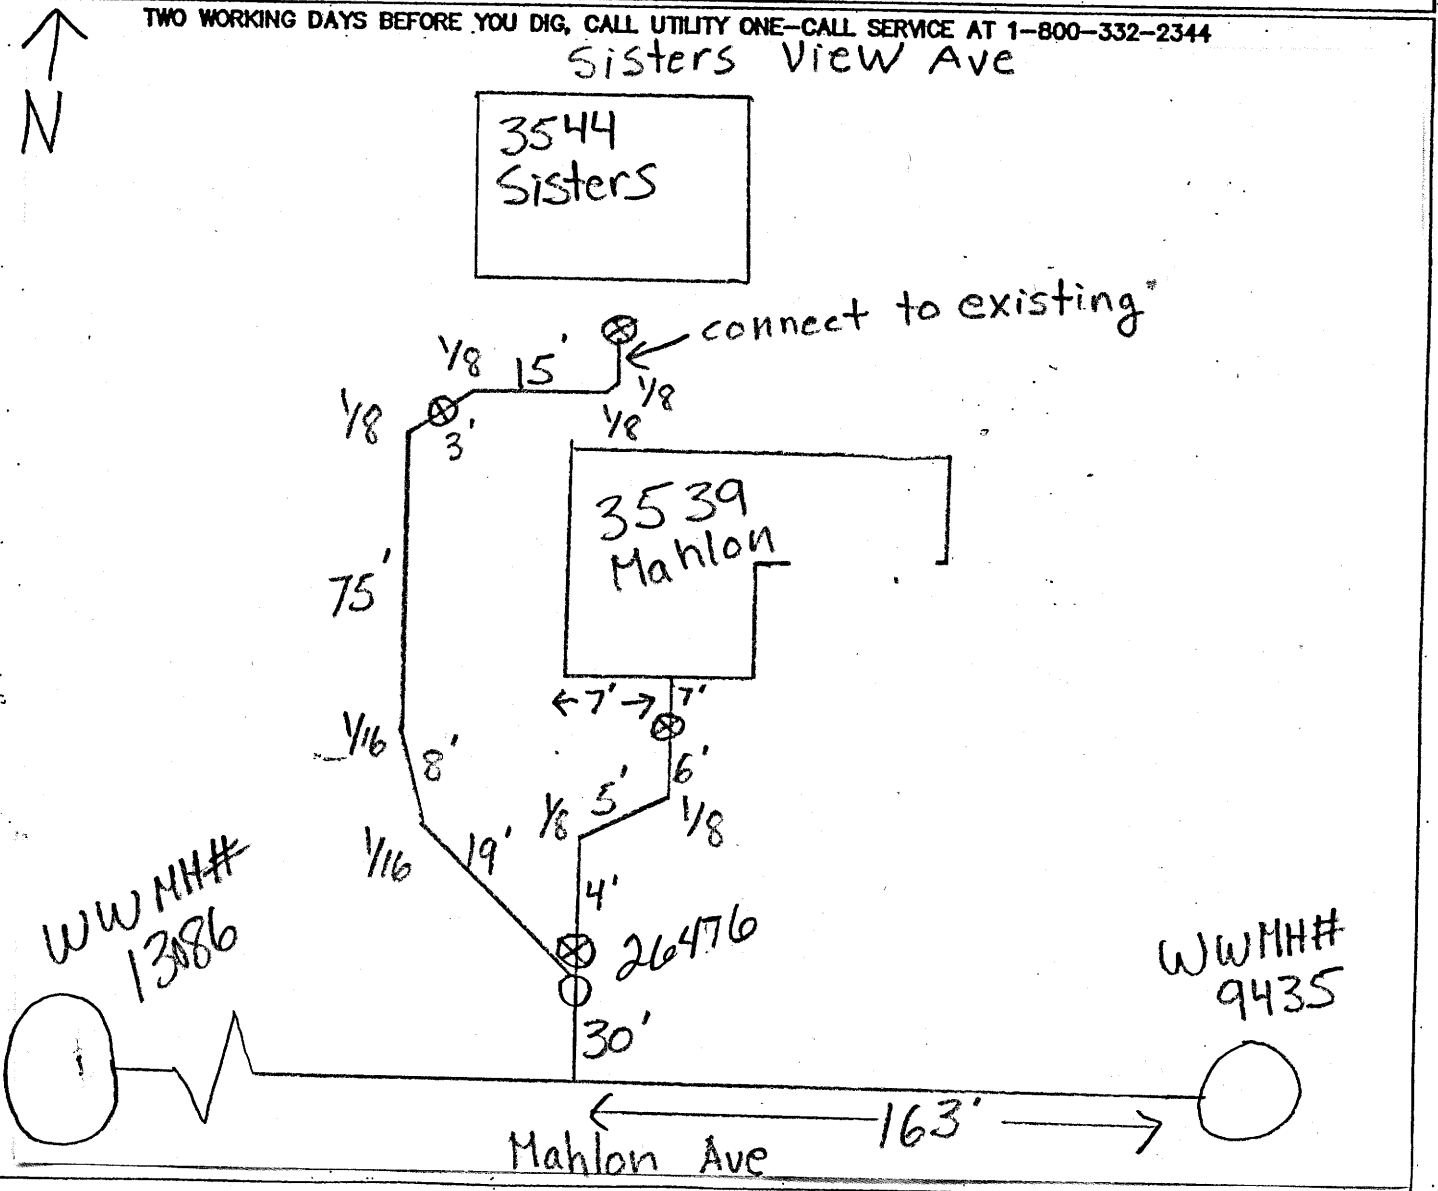 TWO WORKING DAYS BEFORE YOU DIG, CALL UTILITY ONE-CALL SERVICE AT 1-800-332-2344
Sisters View Ave
N
3544
Sisters
connect to existing
1/8
15'
1/8
1/8
1/8
3'
3539
Mahlon
75'
←7'→
7'
1/16
8'
6'
5'
1/8
1/8
1/16
19'
4'
WWMH#
13086
26476
WWMH#
9435
30'
163'
Mahlon Ave